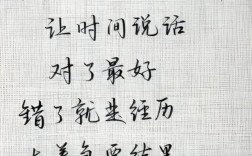 让时间说话
对了最好
错了就是经历